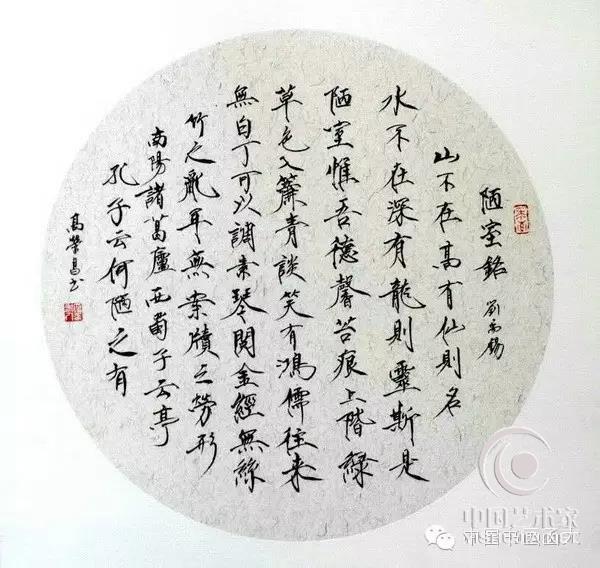 陋室銘 劉禹錫
山不在高有仙則名
水不在深有龍則靈斯是
陋室惟吾德馨苔痕上階綠
草色入簾青談笑有鴻儒往来
無白丁可以調素琴閱金經無絲
竹之亂耳無案牘之勞形
南陽諸葛廬西蜀子云亭
孔子云何陋之有
高榮昌书
中国艺术家